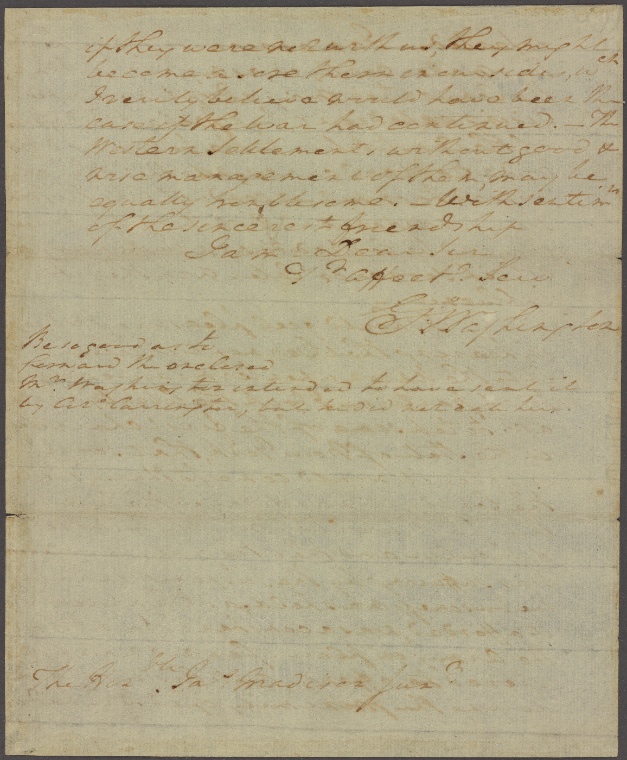 if they were not with us, they might
become a sore thorn in our side, wch
I verily believe would have been the
case if the war had continued. — The
Western Settlements without good &
wise management of them, may be
equally troublesome. — With sentimts
of the sincerest friendship
I am, Dear Sir
Yr Affecte Serv
Go: Washington
Be so good as to
forward the enclosed
Mrs Washington intended to have sent it
by Colo. Carrington, but he did not call here.
The Honble Jas Madison Junr